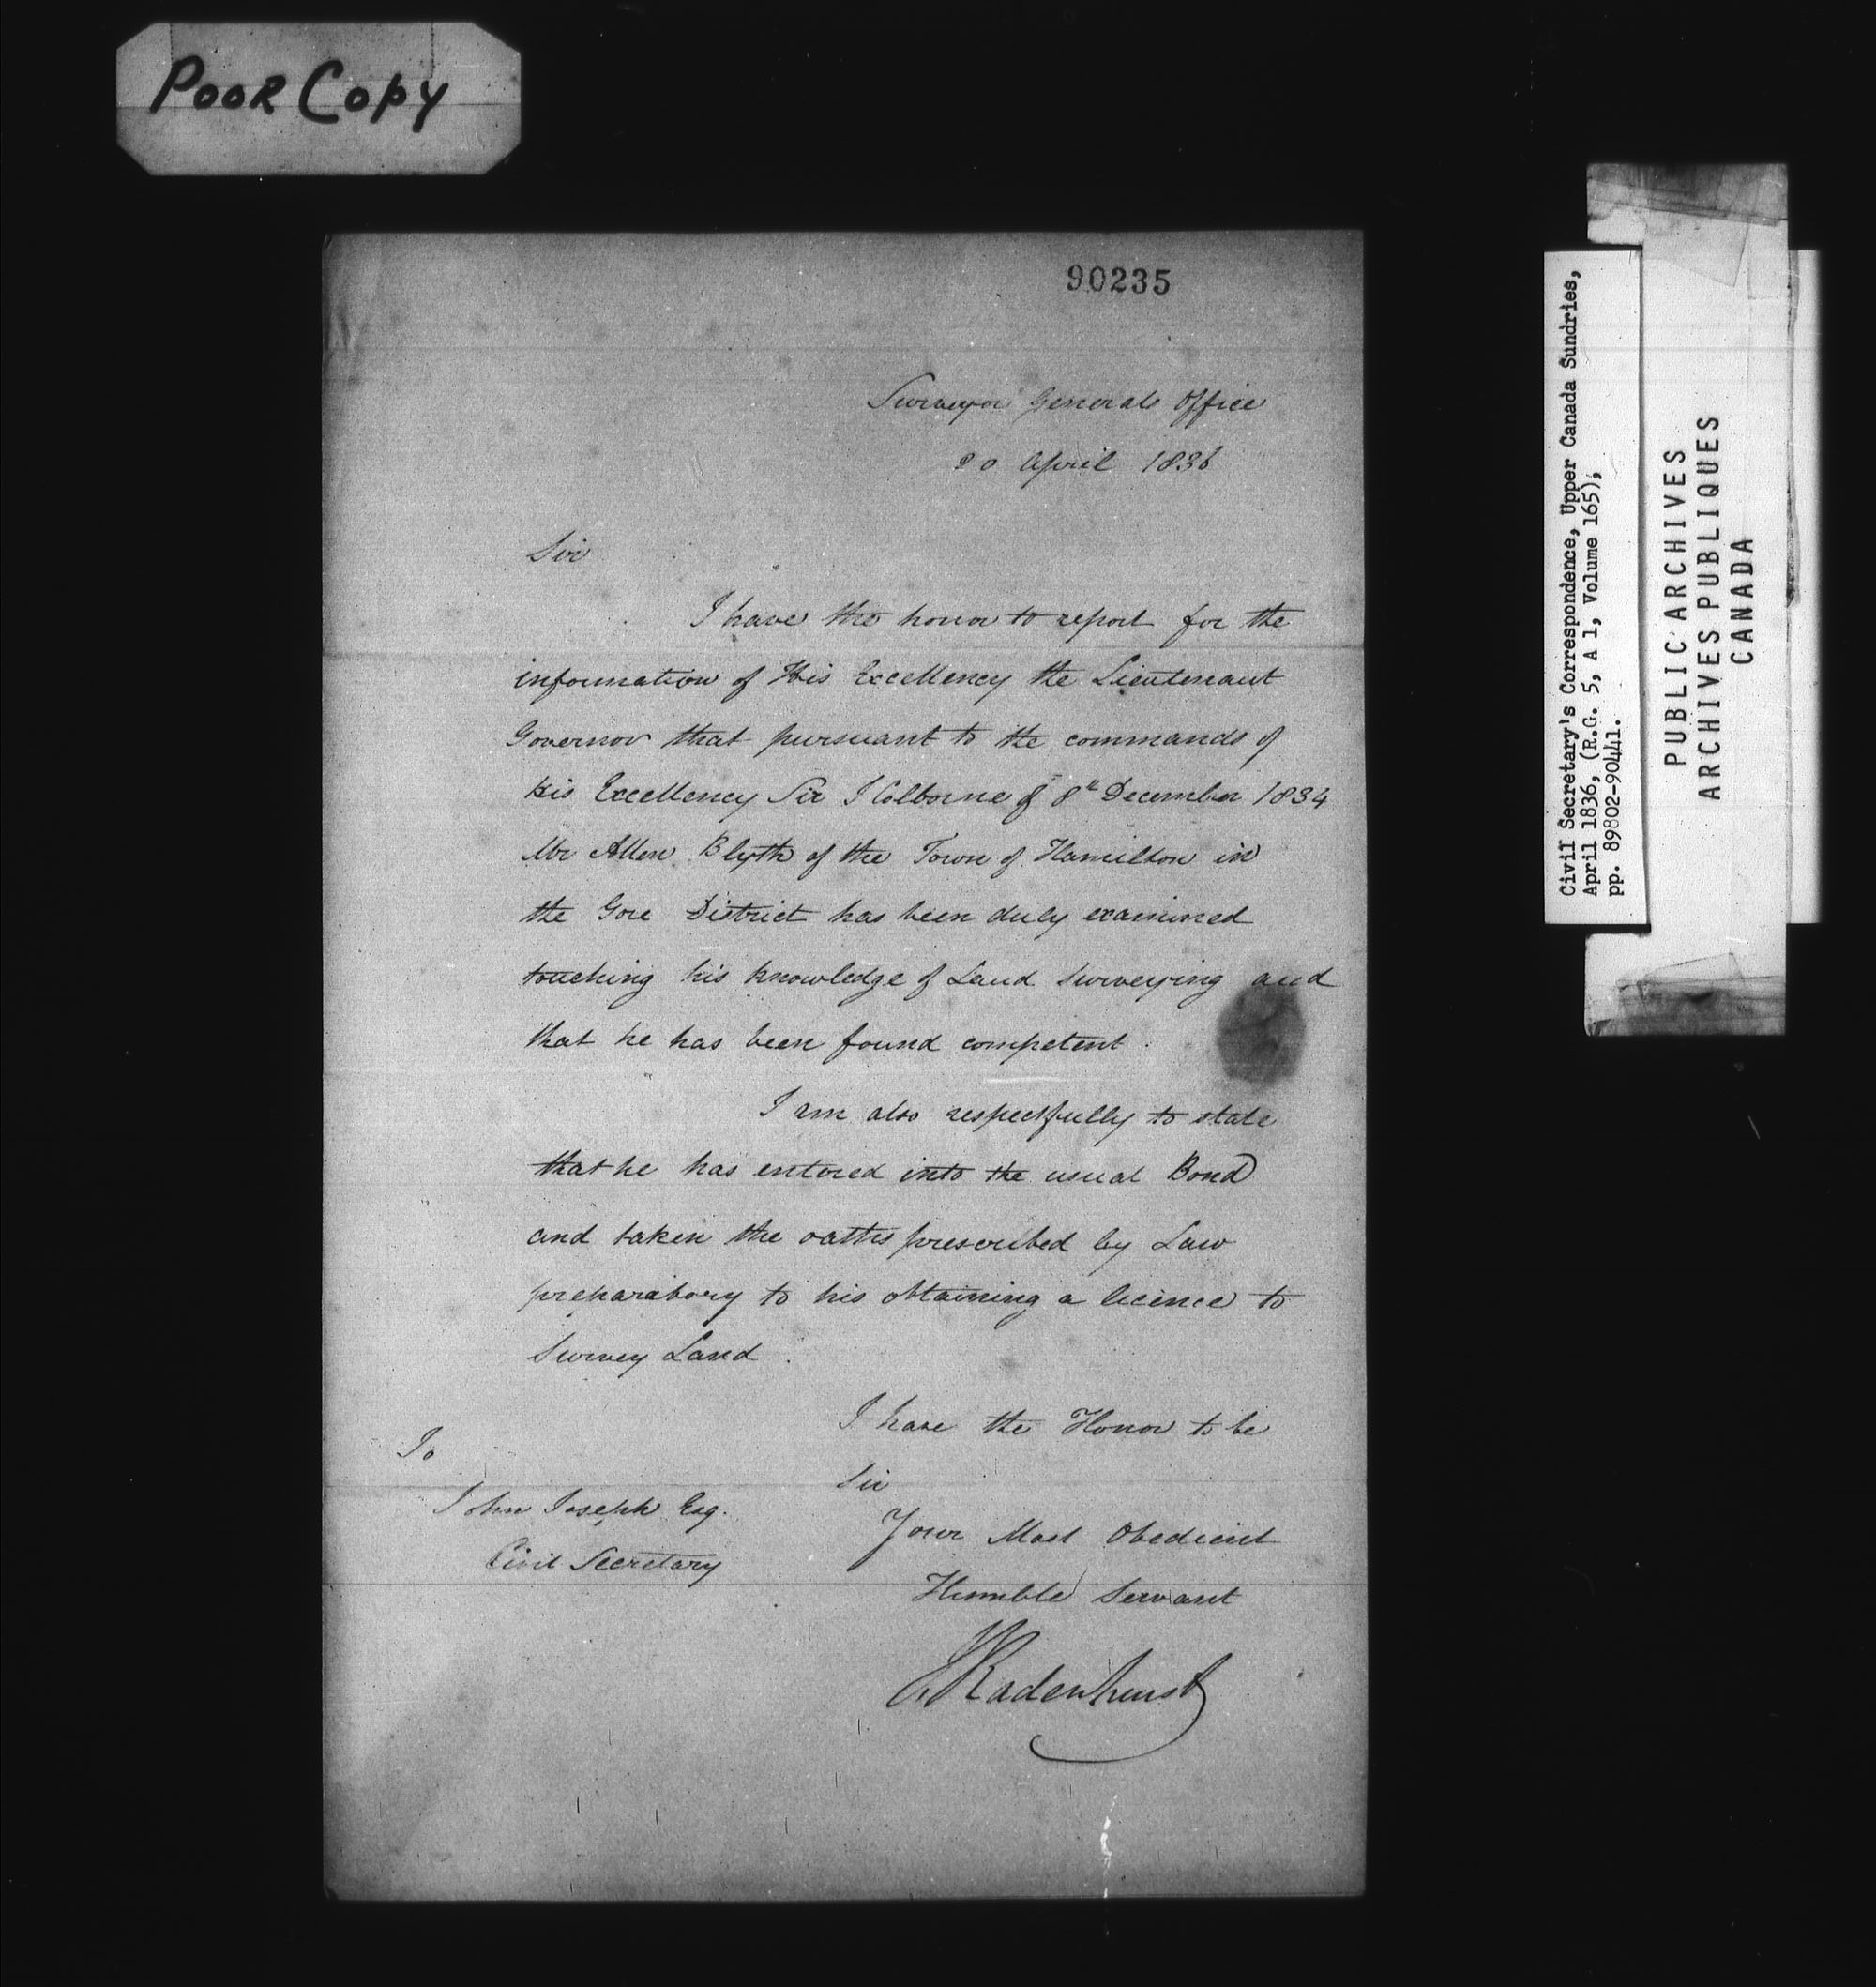 Poor Copy
90235
Surveyor Generals Office
20 April 1836
Sir
I have the honor to report for the
information of His Excellency the Lieutenant
Governor that pursuant to the commands of
his Excellency Sir J Colborne of 8th December 1834
Mr Allen Blyth of the Town of Hamilton in
the Gore District has been duly examined
touching his knowledge of Land Surveying and
that he has been found competent.
I am also respectfully to state
that he has entered into the usual Bond
and taken the oaths prescribed by Law
preparatory to his obtaining a licence to
Survey Land.
I have the Honor to be
Sir
Your Most Obedient
Humble Servant
J Radenhurst
To
John Joseph Esq.
Civil Secretary
Civil Secretary's Correspondence, Upper Canada Sundries,
April 1836, (R.G. 5, A 1, Volume 165),
pp. 89802-90441.
PUBLIC ARCHIVES
ARCHIVES PUBLIQUES
CANADA